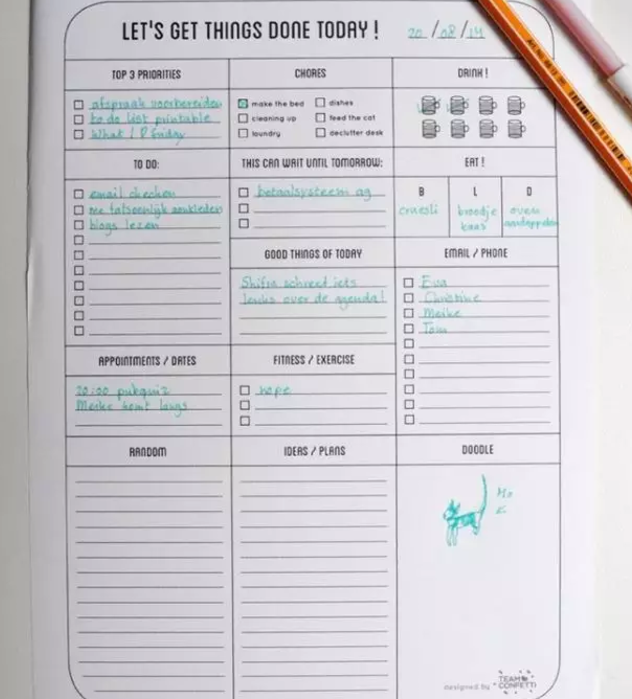 LET'S GET THINGS DONE TODAY !
20/08/14
TOP 3 PRIORITIES
afspraak voorbereiden
to do list printable
What I ♥ friday
CHORES
make the bed
dishes
cleaning up
feed the cat
laundry
declutter desk
DRINK !
TO DO:
email checken
me fatsoenlijk aankleden
blogs lezen
THIS CAN WAIT UNTIL TOMORROW:
betaalsysteem ag
EAT !
B
L
D
cruesli
broodje
kaas
oven
aardappelen
GOOD THINGS OF TODAY
Shifra schreef iets
leuks over de agenda!
EMAIL / PHONE
Eva
Christine
Meike
Tom
APPOINTMENTS / DATES
20:00 pubquiz
Meike komt langs
FITNESS / EXERCISE
nope
RANDOM
IDEAS / PLANS
DOODLE
designed by
TEAM
CONFETTI